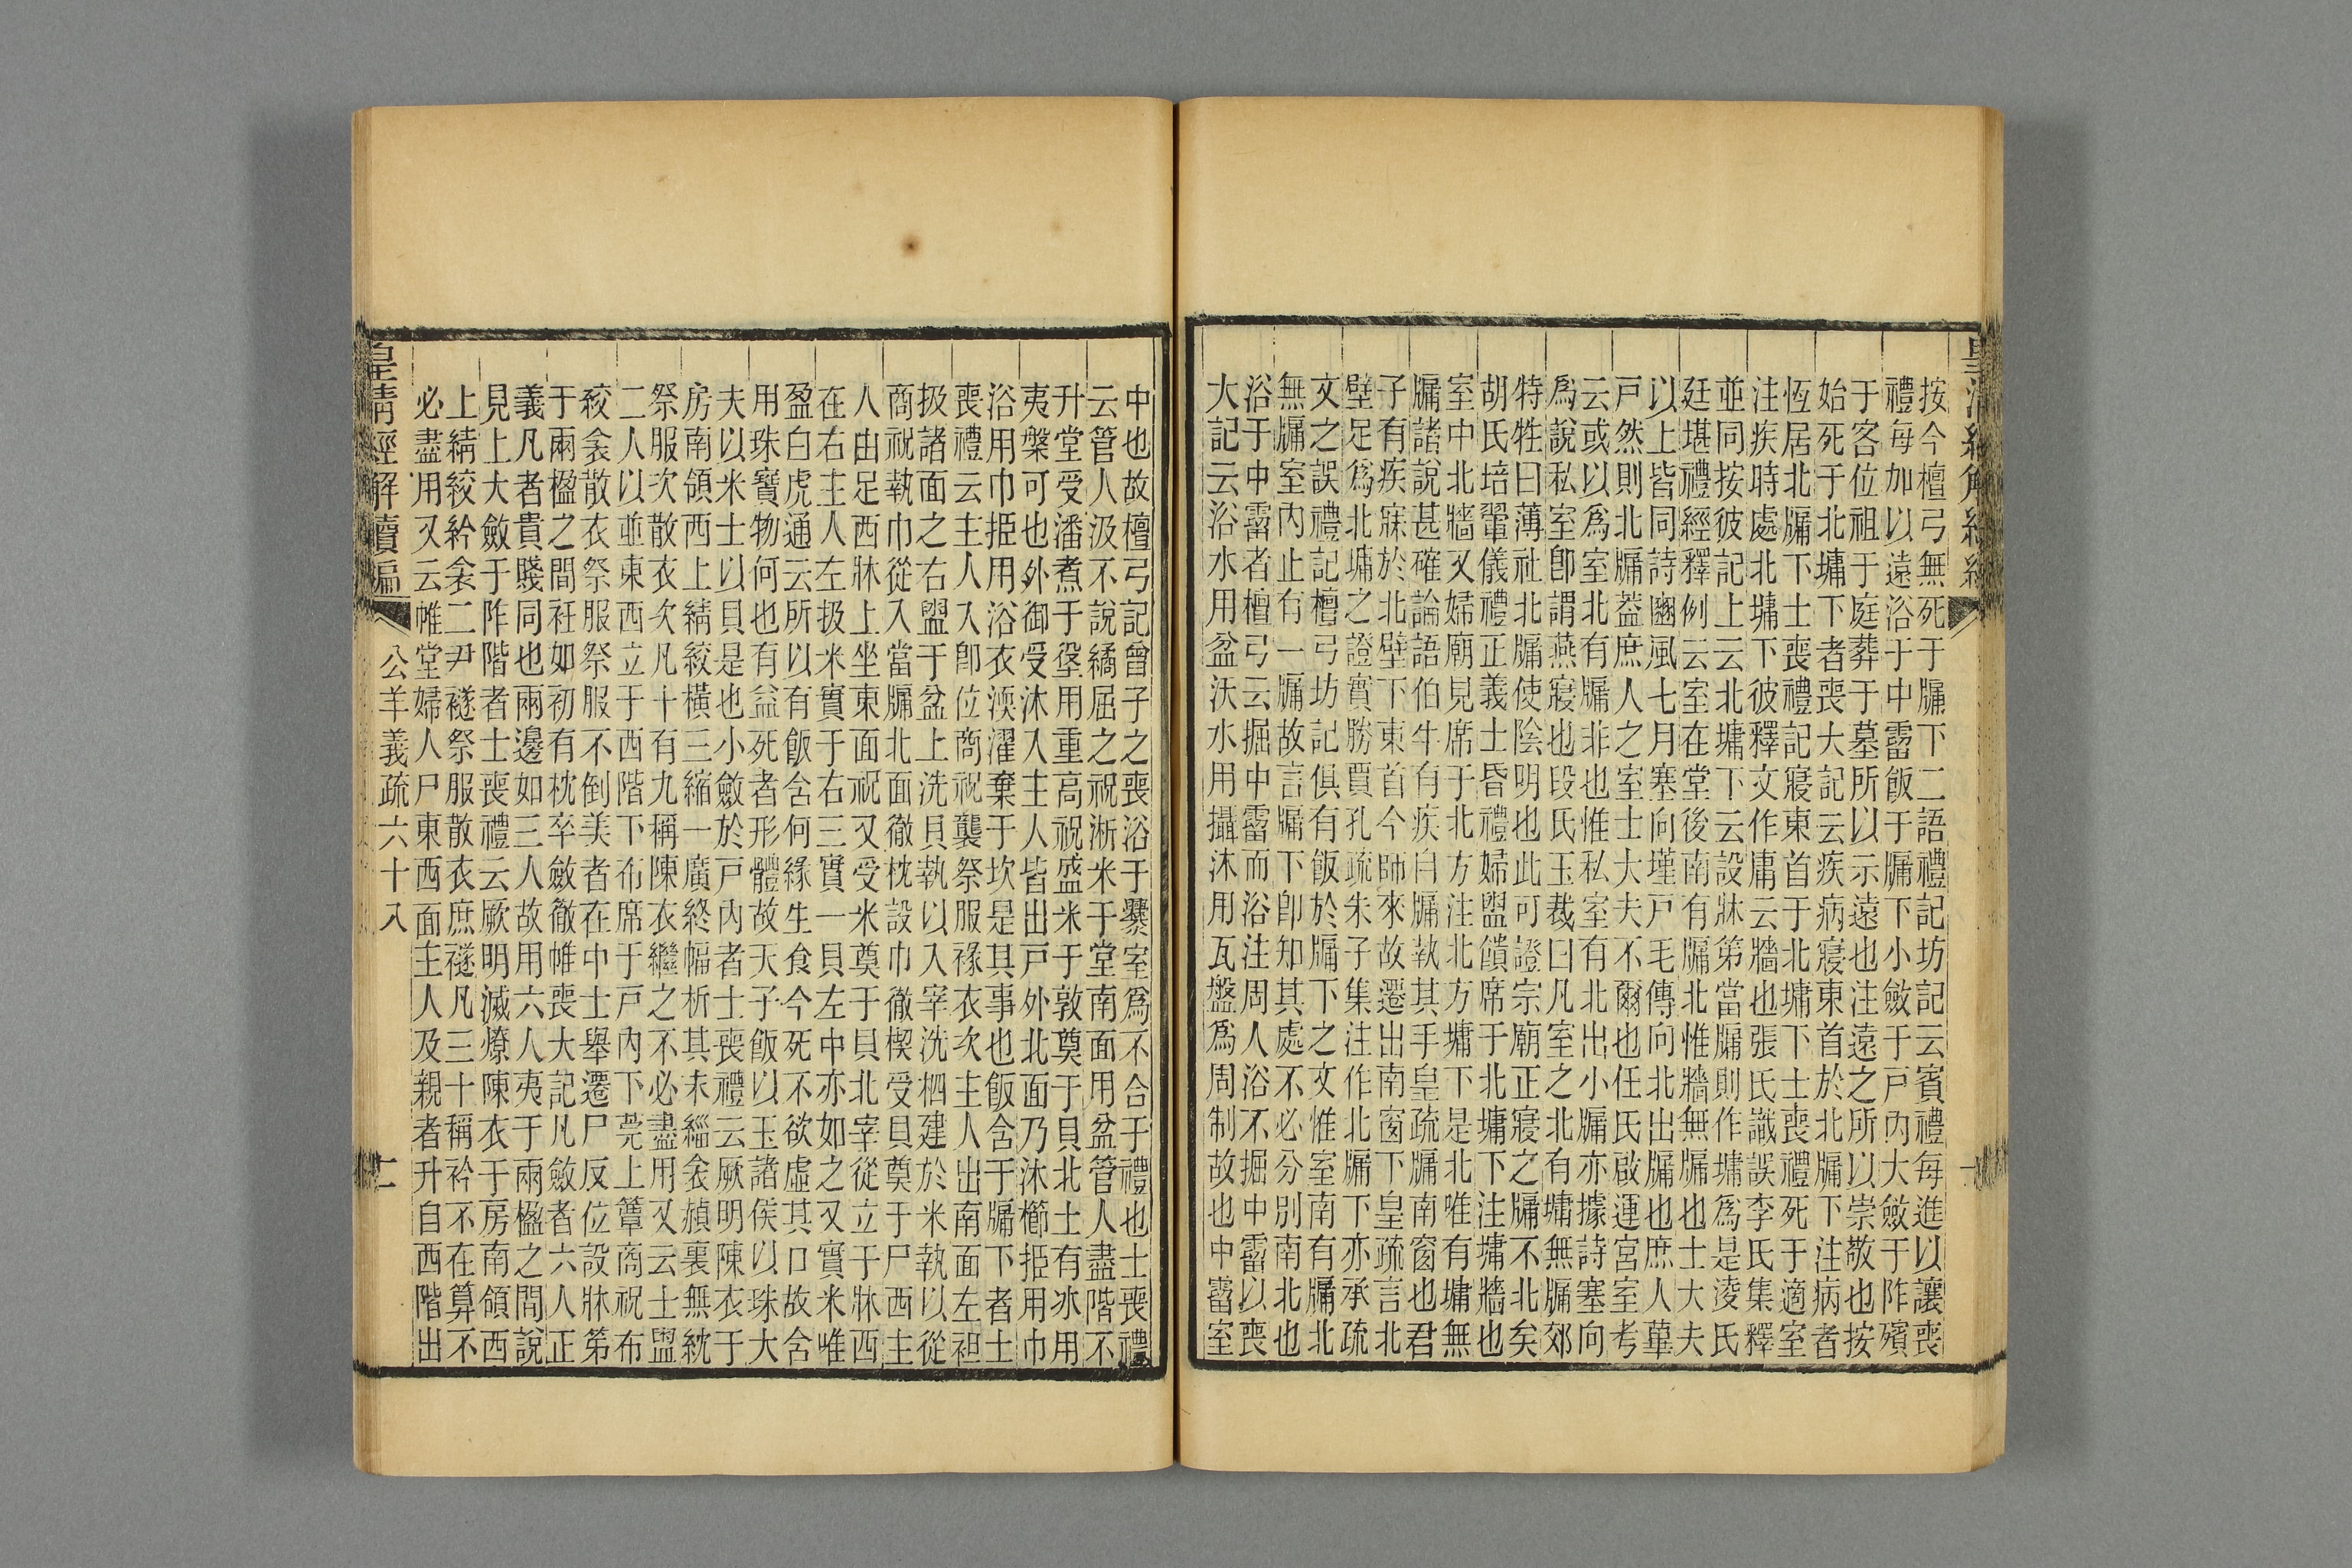 按今檀弓無死于牖下二語禮記坊記云賓禮每進以讓喪
禮每加以遠浴于中霤飯于牖下小斂于戶內大斂于阼殯
于客位祖于庭葬于墓所以示遠也注遠之所以崇敬也按
始死于北墉下者喪大記云疾病寢東首於北牖下注病者
恆居北牖下士喪禮記寢東首于北墉下士喪禮死于適室
注疾時處北墉下彼釋文作庸云牆也張氏識誤李氏集釋
並同按彼記上云北墉下云設牀第當牖則作墉爲是淩氏
廷堪禮經釋例云室在堂後南有牖北惟牆無牖也士大夫
以上皆同詩豳風七月塞向墐戶毛傳向北出牖也庶人蓽
戶然則北牖葢庶人之室士大夫不爾也任氏啟運宮室考
云或以爲室北有牖非也惟私室有北出小牖亦據詩塞向
爲說私室卽謂燕寢也段氏玉裁曰凡室之北有墉無牖郊
特牲曰薄社北牖使陰明也此可證宗廟正寢之牖不北矣
胡氏培翬儀禮正義士昏禮婦盥饋席于北墉下注墉牆也
室中北牆又婦廟見席于北方注北方墉下是北唯有墉無
牖諸說甚確論語伯牛有疾自牖執其手皇疏牖南窗也君
子有疾寐於北壁下東首今師來故遷出南窗下皇疏言北
壁足爲北墉之證實勝賈孔疏朱子集注作北牖下亦承疏
文之誤禮記檀弓坊記俱有飯於牖下之文惟室南有牖北
無牖室內止有一牖故言牖下卽知其處不必分別南北也
浴于中霤者檀弓云掘中霤而浴注周人浴不掘中霤以喪
大記云浴水用盆沃水用攝沐用瓦盤爲周制故也中霤室
中也故檀弓記曾子之喪浴于爨室爲不合于禮也士喪禮
云管人汲不說繘屈之祝淅米于堂南面用盆管人盡階不
升堂受潘煮于垼用重高祝盛米于敦奠于貝北士有冰用
夷槃可也外御受沐入主人皆出戶外北面乃沐櫛挋用巾
浴用巾挋用浴衣渜濯棄于坎是其事也飯含于牖下者士
喪禮云主人入卽位商祝襲祭服祿衣次主人出南面左袒
扱諸面之右盥于盆上洗貝執以入宰洗柶建於米執以從
商祝執巾從入當牖北面徹枕設巾徹楔受貝奠于尸西主
人由足西牀上坐東面祝又受米奠于貝北宰從立于牀西
在右主人左扱米實于右三實一貝左中亦如之又實米唯
盈白虎通云所以有飯含何緣生食今死不欲虛其口故含
用珠寶物何也有益死者形體故天子飯以玉諸侯以珠大
夫以米士以貝是也小斂於戶內者士喪禮云厥明陳衣于
房南領西上綪絞橫三縮一廣終幅析其末緇衾赬裏無紞
祭服次散衣次凡十有九稱陳衣繼之不必盡用又云士盥
二人以並東西立于西階下布席于戶內下莞上簟商祝布
絞衾散衣祭服祭服不倒美者在中士舉遷尸反位設牀第
于兩楹之間衽如初有枕卒斂徹帷喪大記凡斂者六人正
義凡者貴賤同也兩邊如三人故用六人夷于兩楹之間說
見上大斂于阼階者士喪禮云厥明滅燎陳衣于房南領西
上綪絞紟衾二尹襚祭服散衣庶襚凡三十稱衿不在算不
必盡用又云帷堂婦人尸東西面主人及親者升自西階出
皇清經解續編
公羊義疏六十八